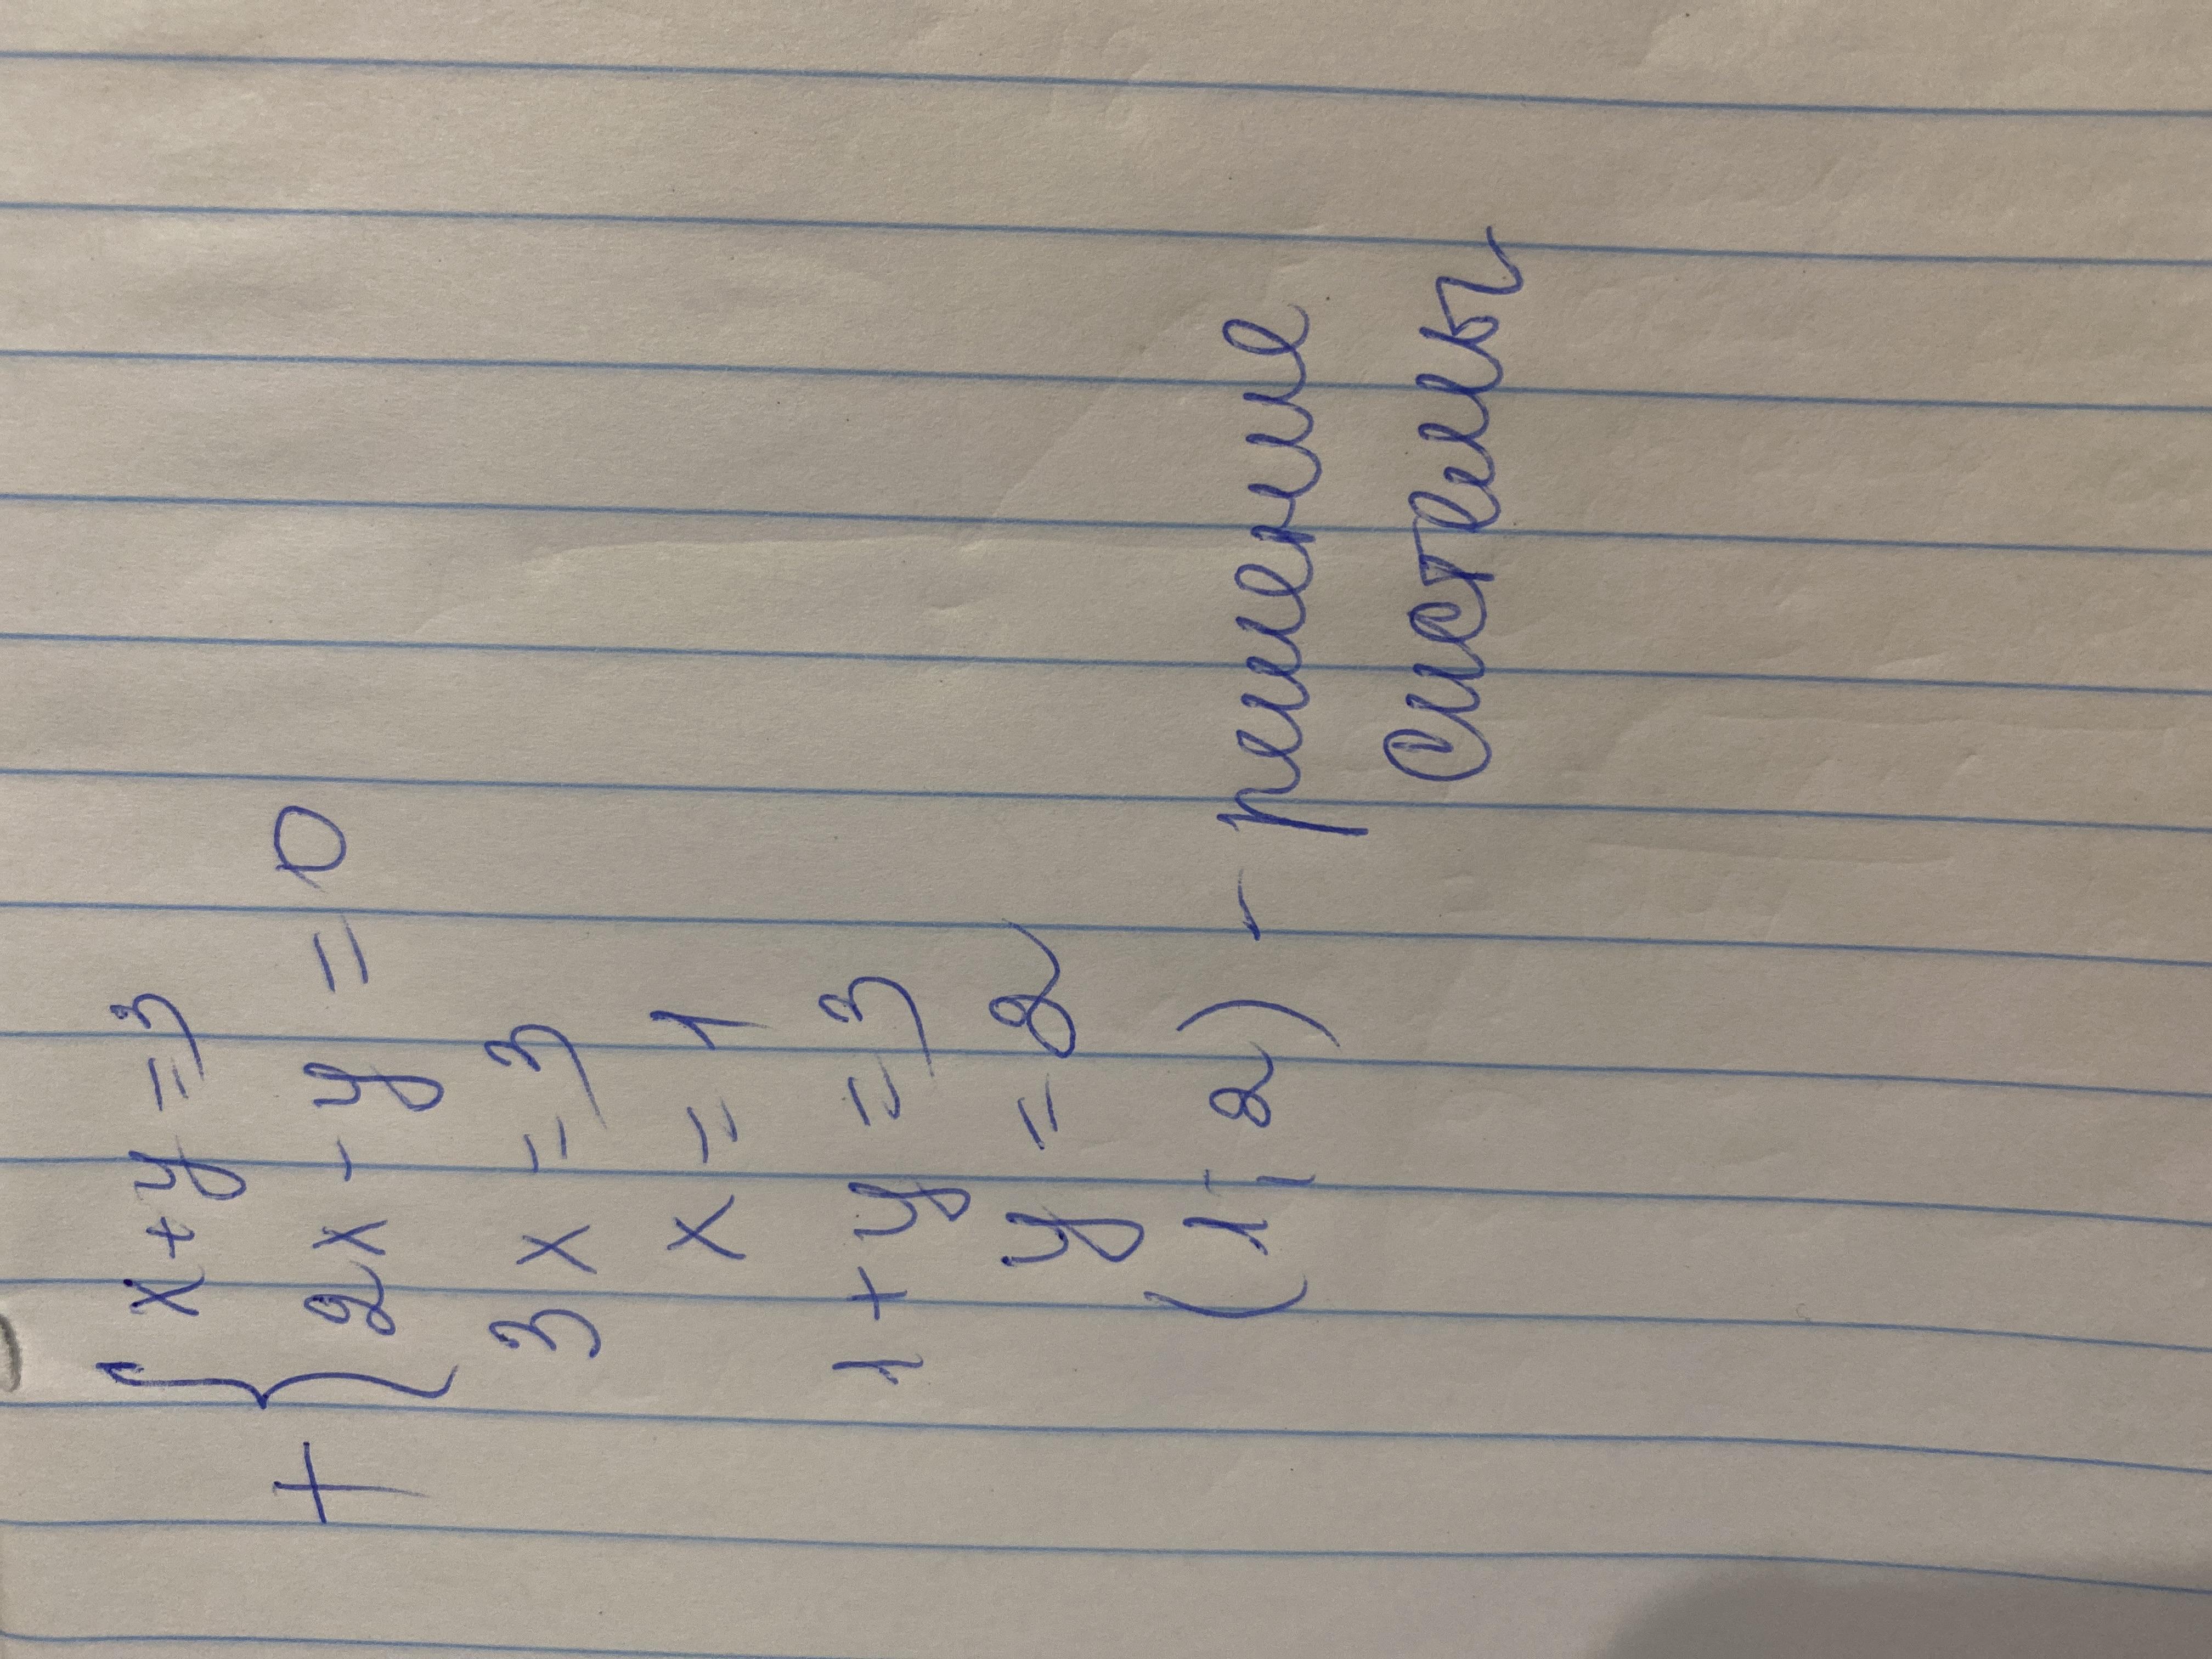 + { x + y = 3
2x - y = 0
3x = 3
x = 1
1 + y = 3
y = 2
(1; 2) - решение
системы